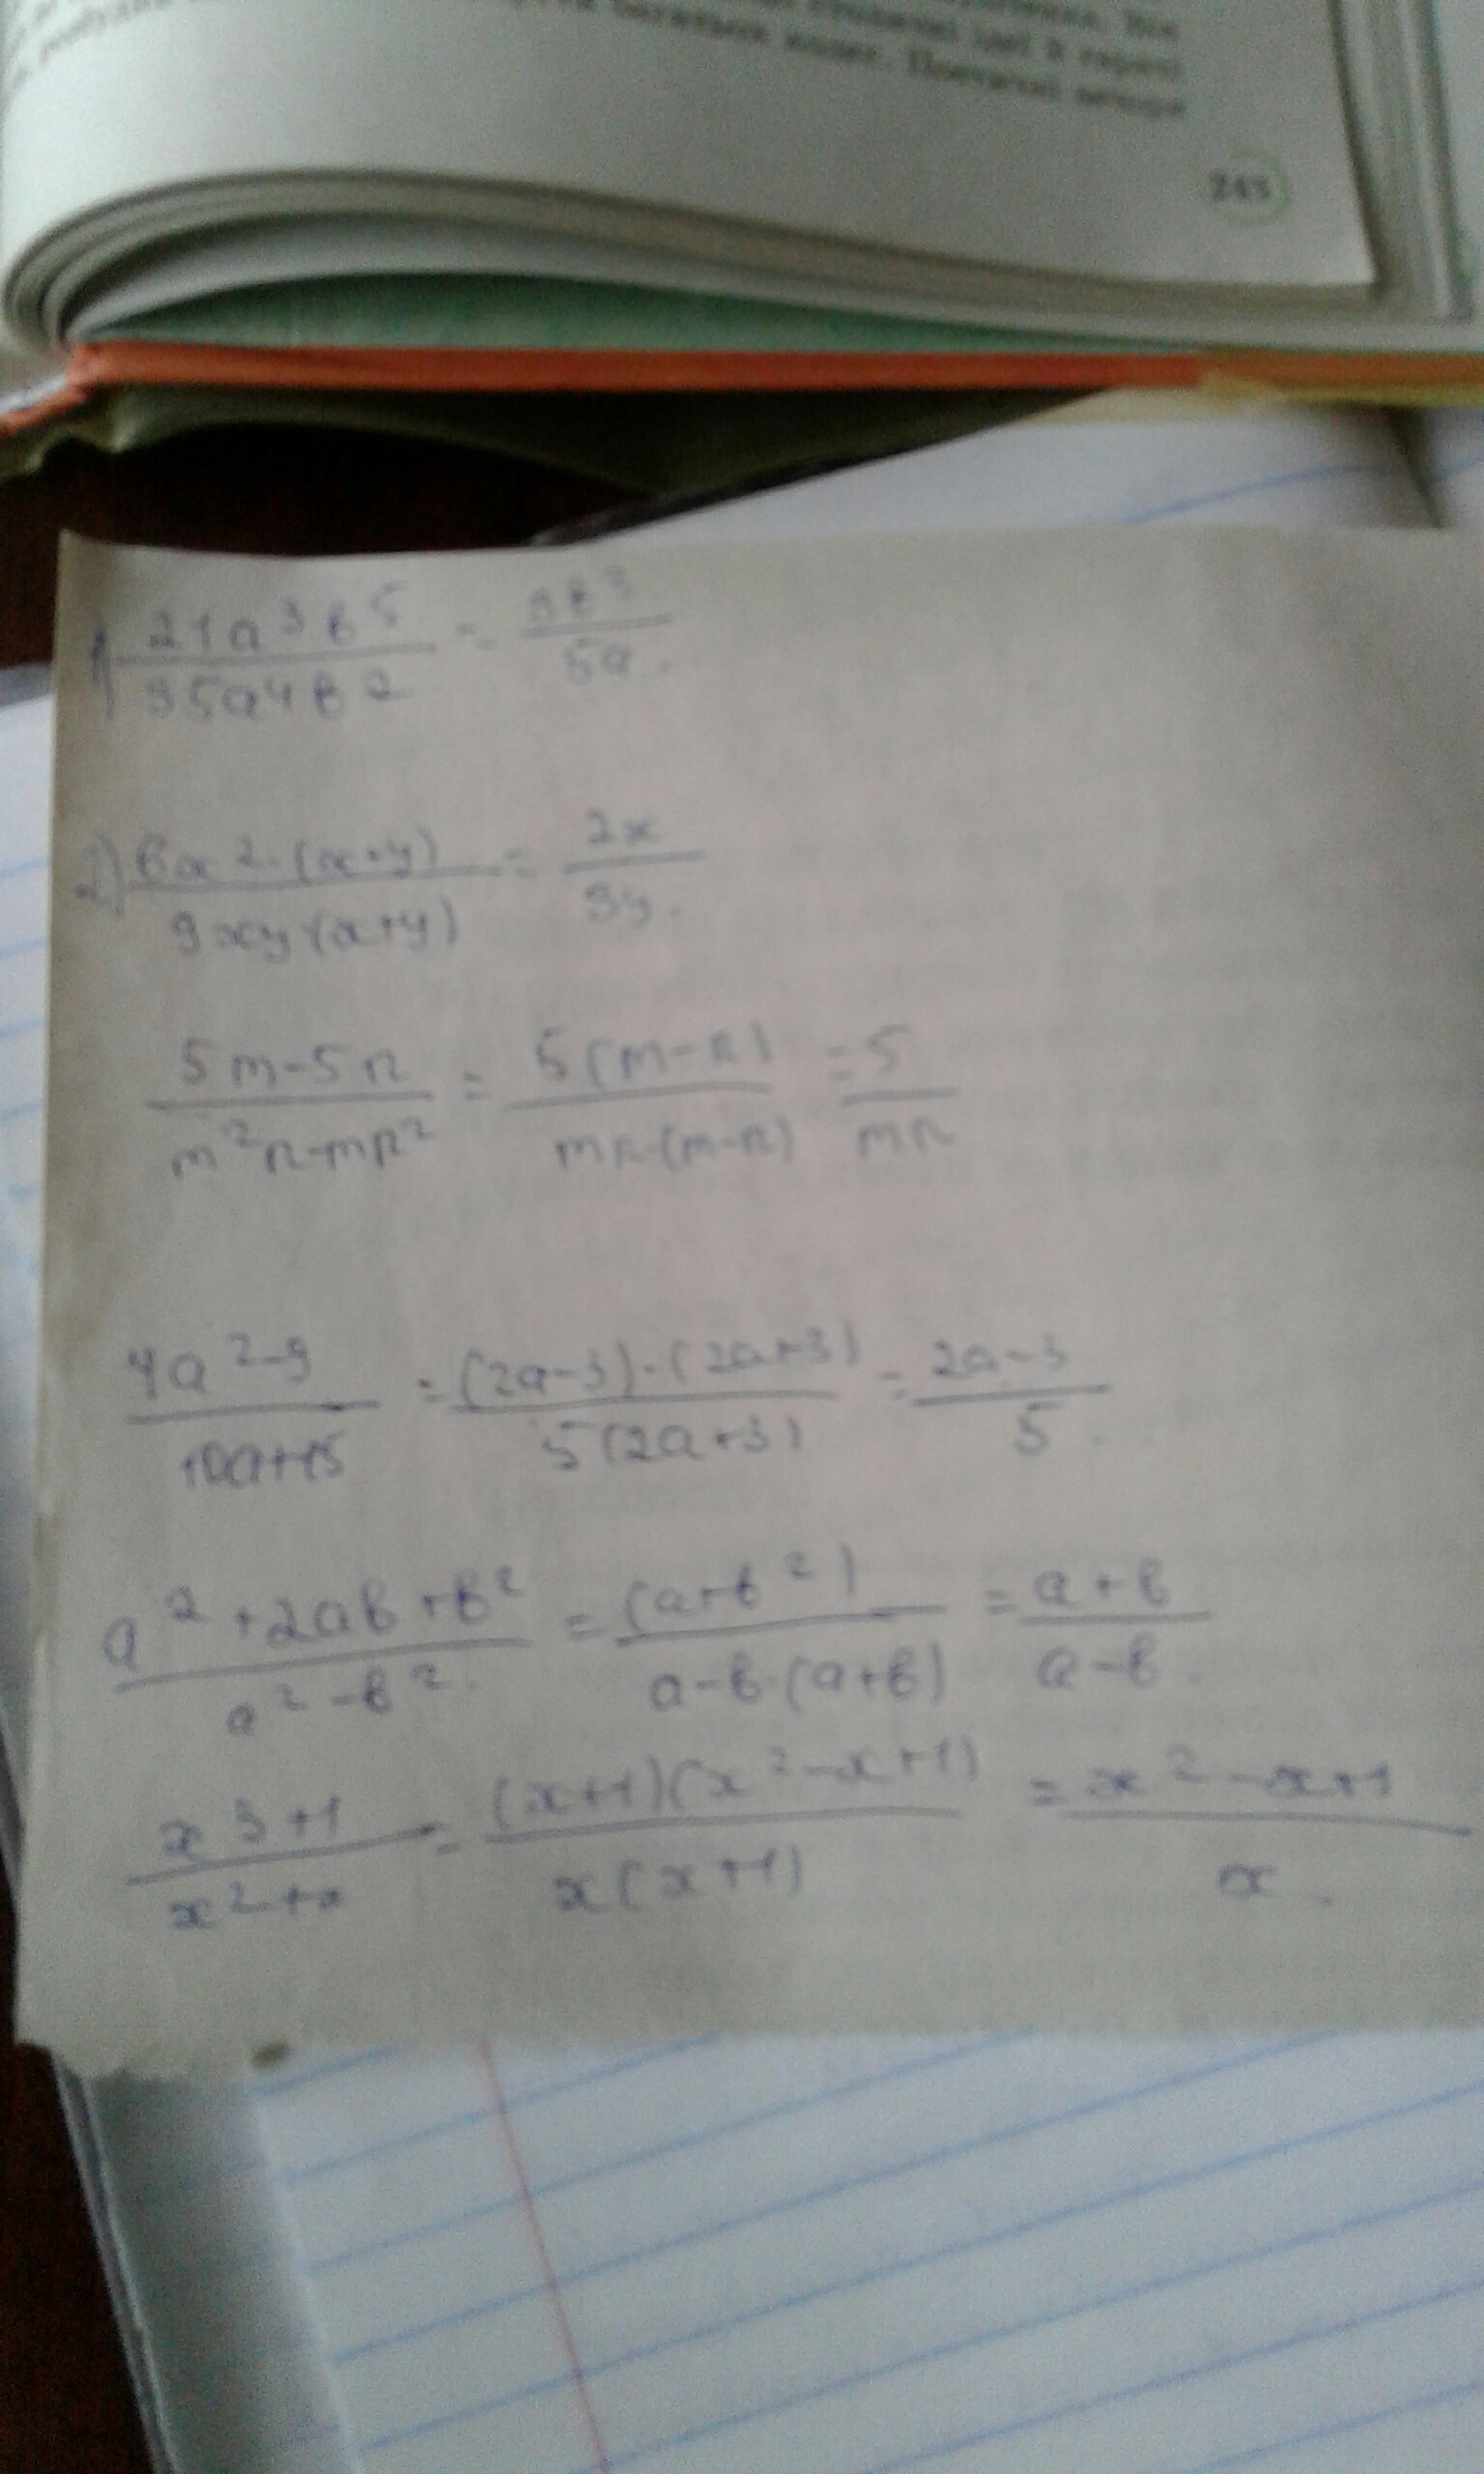 245
1) 21a³b⁵ / 35a⁴b² = 3b³ / 5a.
2) 6x²·(x+y) / 9xy(x+y) = 2x / 3y.
5m-5n / m²n-mn² = 5(m-n) / mn·(m-n) = 5 / mn
4a²-9 / 10a+15 = (2a-3)·(2a+3) / 5(2a+3) = 2a-3 / 5.
a²+2ab+b² / a²-b². = (a+b²) / a-b·(a+b) = a+b / a-b.
x3+1 / x²+x = (x+1)(x²-x+1) / x(x+1) = x²-x+1 / x.